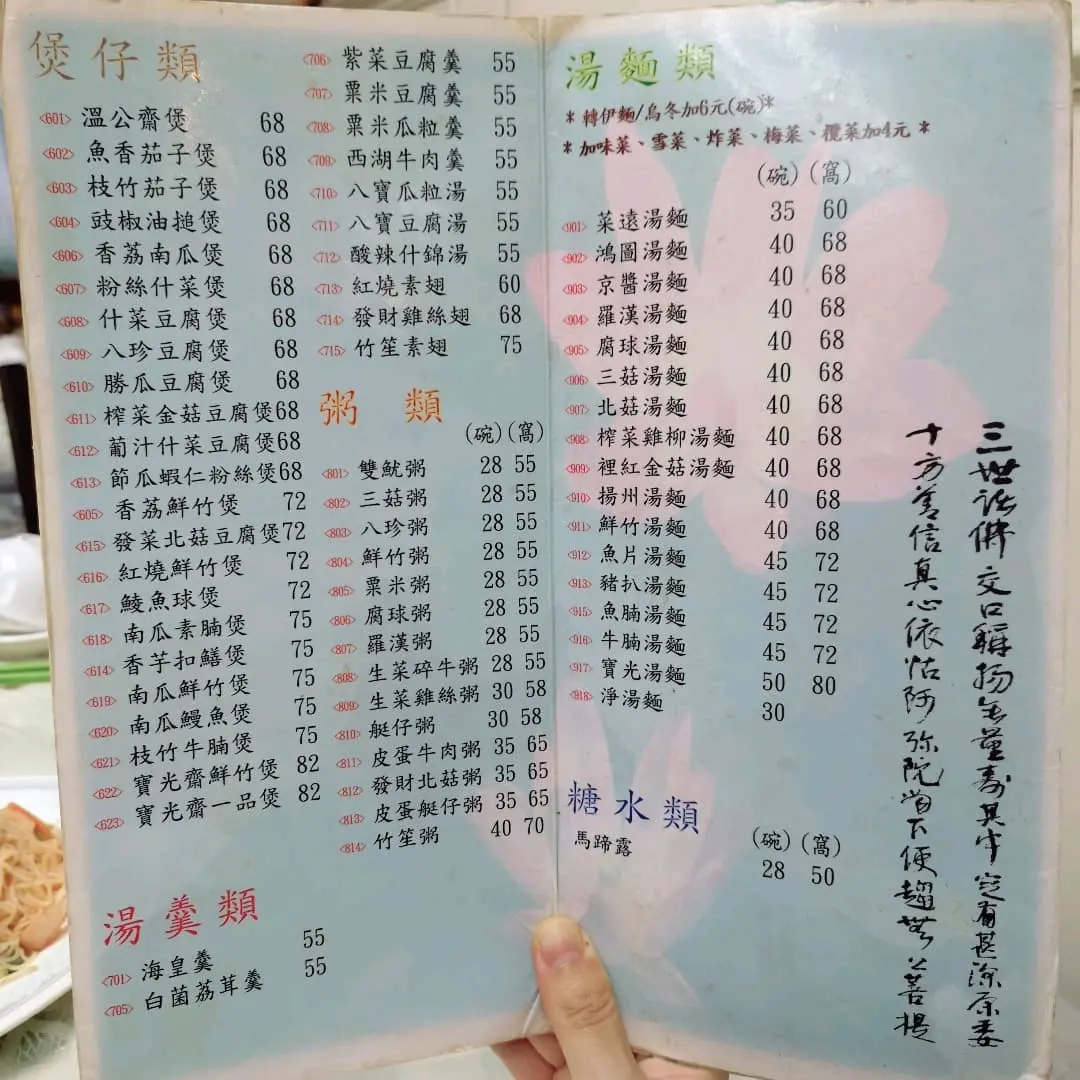 煲仔類
<601> 溫公齋煲 68
<602> 魚香茄子煲 68
<603> 枝竹茄子煲 68
<604> 豉椒油搥煲 68
<606> 香荔南瓜煲 68
<607> 粉絲什菜煲 68
<608> 什菜豆腐煲 68
<609> 八珍豆腐煲 68
<610> 勝瓜豆腐煲 68
<611> 榨菜金菇豆腐煲 68
<612> 葡汁什菜豆腐煲 68
<613> 節瓜蝦仁粉絲煲 68
<605> 香荔鮮竹煲 72
<615> 發菜北菇豆腐煲 72
<616> 紅燒鮮竹煲 72
<617> 鯪魚球煲 72
<618> 南瓜素腩煲 75
<614> 香芋扣鱔煲 75
<619> 南瓜鮮竹煲 75
<620> 南瓜鰻魚煲 75
<621> 枝竹牛腩煲 75
<622> 寶光齋鮮竹煲 82
<623> 寶光齋一品煲 82
湯羹類
<701> 海皇羹 55
<705> 白菌荔茸羹 55
<706> 紫菜豆腐羹 55
<707> 粟米豆腐羹 55
<708> 粟米瓜粒羹 55
<709> 西湖牛肉羹 55
<710> 八寶瓜粒湯 55
<711> 八寶豆腐湯 55
<712> 酸辣什錦湯 55
<713> 紅燒素翅 60
<714> 發財雞絲翅 68
<715> 竹笙素翅 75
粥類
(碗) (窩)
<801> 雙魷粥 28 55
<802> 三菇粥 28 55
<803> 八珍粥 28 55
<804> 鮮竹粥 28 55
<805> 粟米粥 28 55
<806> 腐球粥 28 55
<807> 羅漢粥 28 55
<808> 生菜碎牛粥 28 55
<809> 生菜雞絲粥 30 58
<810> 艇仔粥 30 58
<811> 皮蛋牛肉粥 35 65
<812> 發財北菇粥 35 65
<813> 皮蛋艇仔粥 35 65
<814> 竹笙粥 40 70
湯麵類
*轉伊麵/烏冬加6元(碗)*
*加味菜、雪菜、炸菜、梅菜、欖菜加4元*
(碗) (窩)
<901> 菜遠湯麵 35 60
<902> 鴻圖湯麵 40 68
<903> 京醬湯麵 40 68
<904> 羅漢湯麵 40 68
<905> 腐球湯麵 40 68
<906> 三菇湯麵 40 68
<907> 北菇湯麵 40 68
<908> 榨菜雞柳湯麵 40 68
<909> 裡紅金菇湯麵 40 68
<910> 揚州湯麵 40 68
<911> 鮮竹湯麵 40 68
<912> 魚片湯麵 45 72
<913> 豬扒湯麵 45 72
<915> 魚腩湯麵 45 72
<916> 牛腩湯麵 45 72
<917> 寶光湯麵 50 80
<918> 淨湯麵 30
糖水類
(碗) (窩)
馬蹄露 28 50
三世諸佛交口稱揚無量壽其中定有甚深原委
十方善信真心依怙阿弥陀當下便超無上菩提